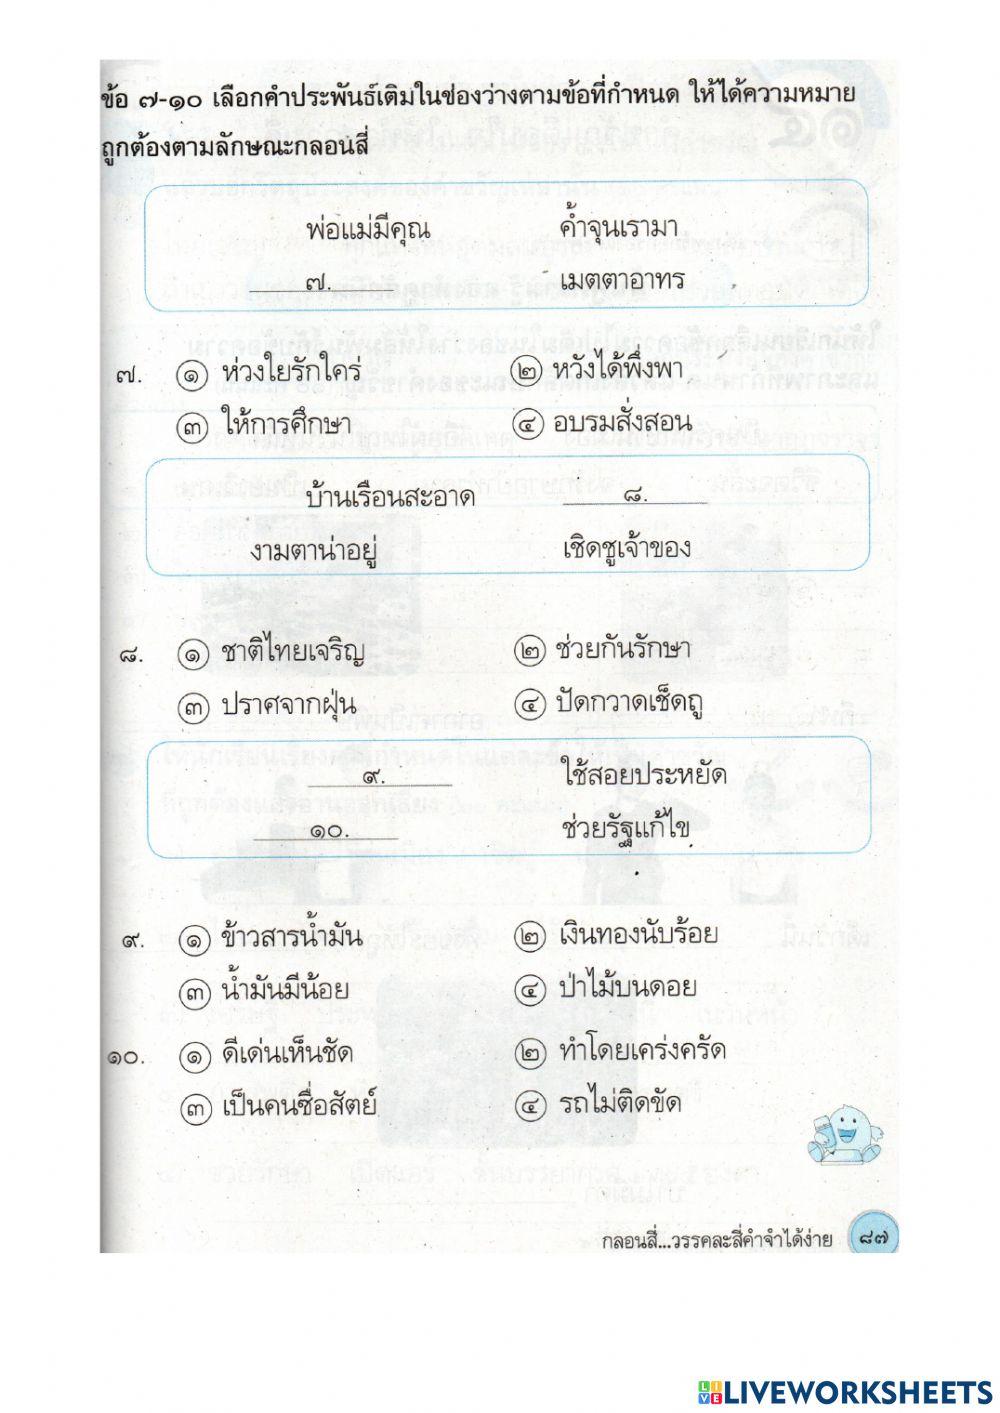 ข้อ ๗-๑๐ เลือกคำประพันธ์เติมในช่องว่างตามข้อที่กำหนด ให้ได้ความหมาย
ถูกต้องตามลักษณะกลอนสี่
พ่อแม่มีคุณ ค้ำจุนเรามา
๗. เมตตาอาทร
๗. ๑ ห่วงใยรักใคร่ ๒ หวังได้พึ่งพา
๓ ให้การศึกษา ๔ อบรมสั่งสอน
บ้านเรือนสะอาด ๘.
งามตาน่าอยู่ เชิดชูเจ้าของ
๘. ๑ ชาติไทยเจริญ ๒ ช่วยกันรักษา
๓ ปราศจากฝุ่น ๔ ปัดกวาดเช็ดถู
๙. ใช้สอยประหยัด
๑๐. ช่วยรัฐแก้ไข
๙. ๑ ข้าวสารน้ำมัน ๒ เงินทองนับร้อย
๓ น้ำมันมีน้อย ๔ ป่าไม้บนดอย
๑๐. ๑ ดีเด่นเห็นชัด ๒ ทำโดยเคร่งครัด
๓ เป็นคนซื่อสัตย์ ๔ รถไม่ติดขัด
กลอนสี่...วรรคละสี่คำจำได้ง่าย ๘๗
LIVEWORKSHEETS